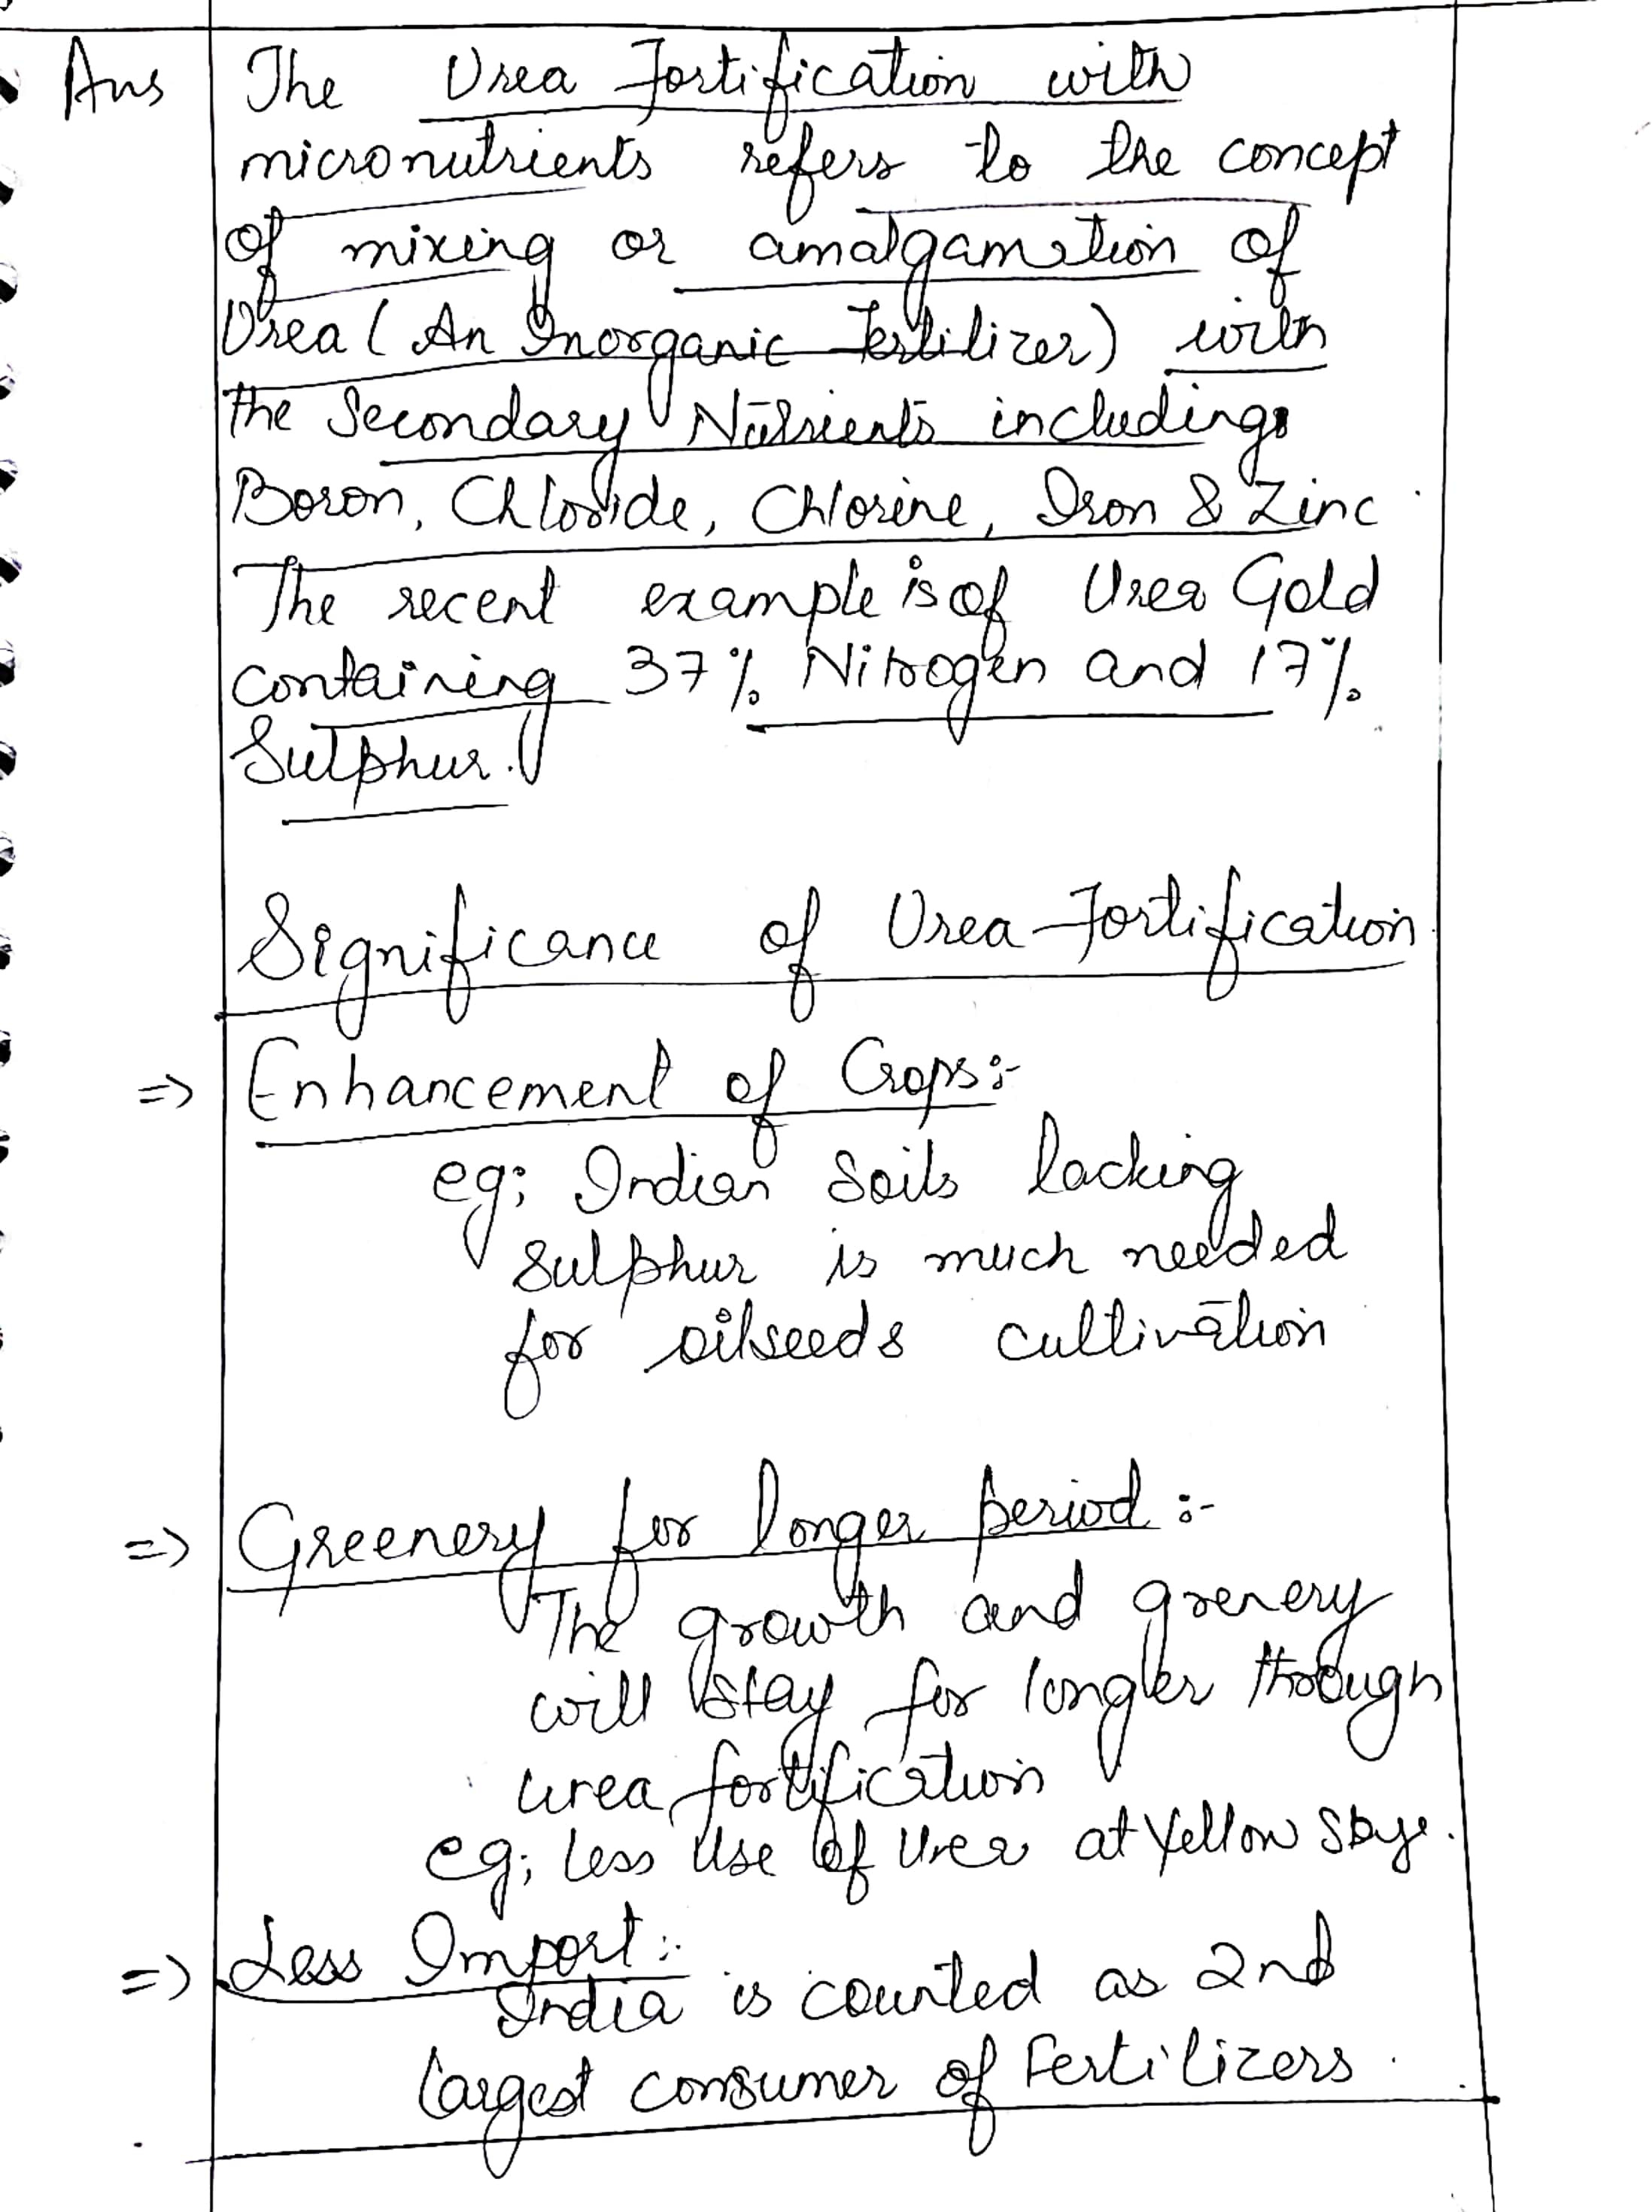 Ans The Urea Fortification with
micronutrients refers to the concept
of mixing or amalgamation of
Urea (An Inorganic Fertilizer) with
the Secondary Nutrients including
Boron, Chloride, Chlorine, Iron & Zinc
The recent example is of Urea Gold
containing 37% Nitrogen and 17%
Sulphur.
Significance of Urea Fortification
=> Enhancement of Crops:-
eg; Indian Soils lacking
Sulphur is much needed
for oilseeds cultivation
=> Greenery for longer period :-
The growth and grenery
will stay for longer through
urea fortification
eg; less Use of Urea at Yellow
=> Less Import:
India is counted as 2nd
largest consumer of Fertilizers.